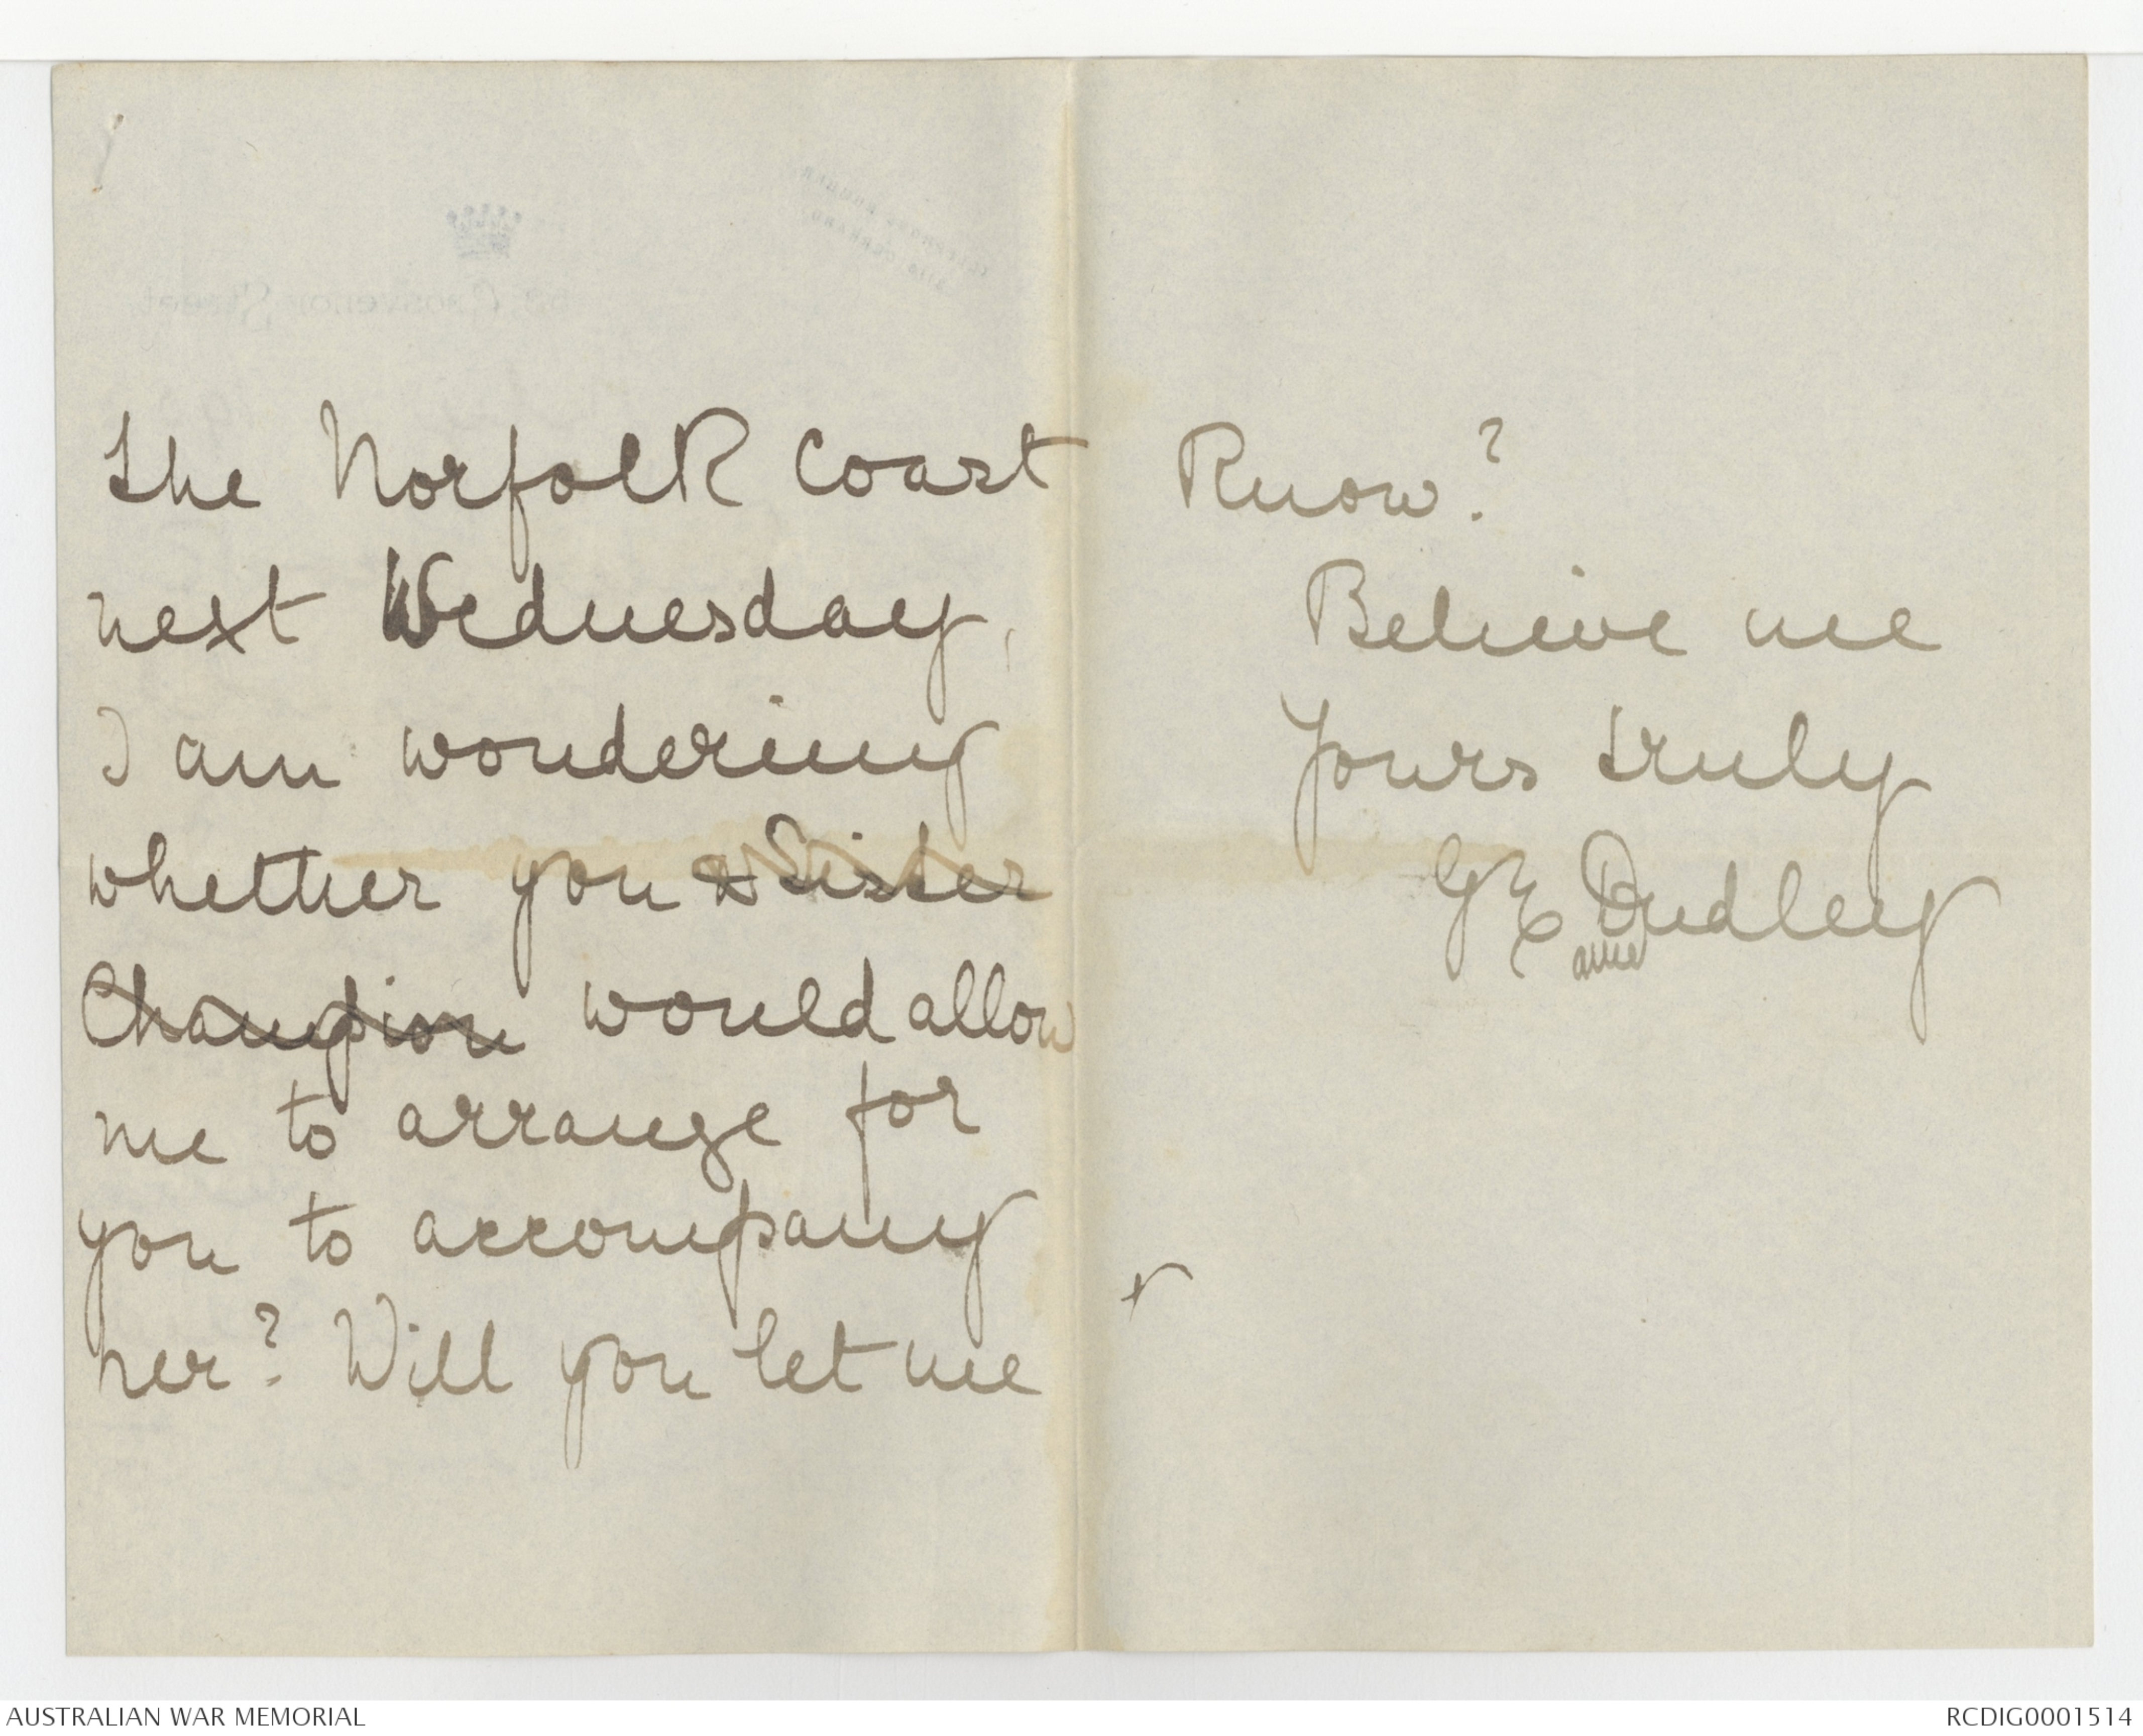 the Norfolk Coast
next Wednesday,
I am wondering
whether you & Sister
Champion would allow
me to arrange for
you to accompany
her? Will you let me
know?
Believe me
Yours truly
G E Dudley
AUSTRALIAN WAR MEMORIAL
RCDIG0001514